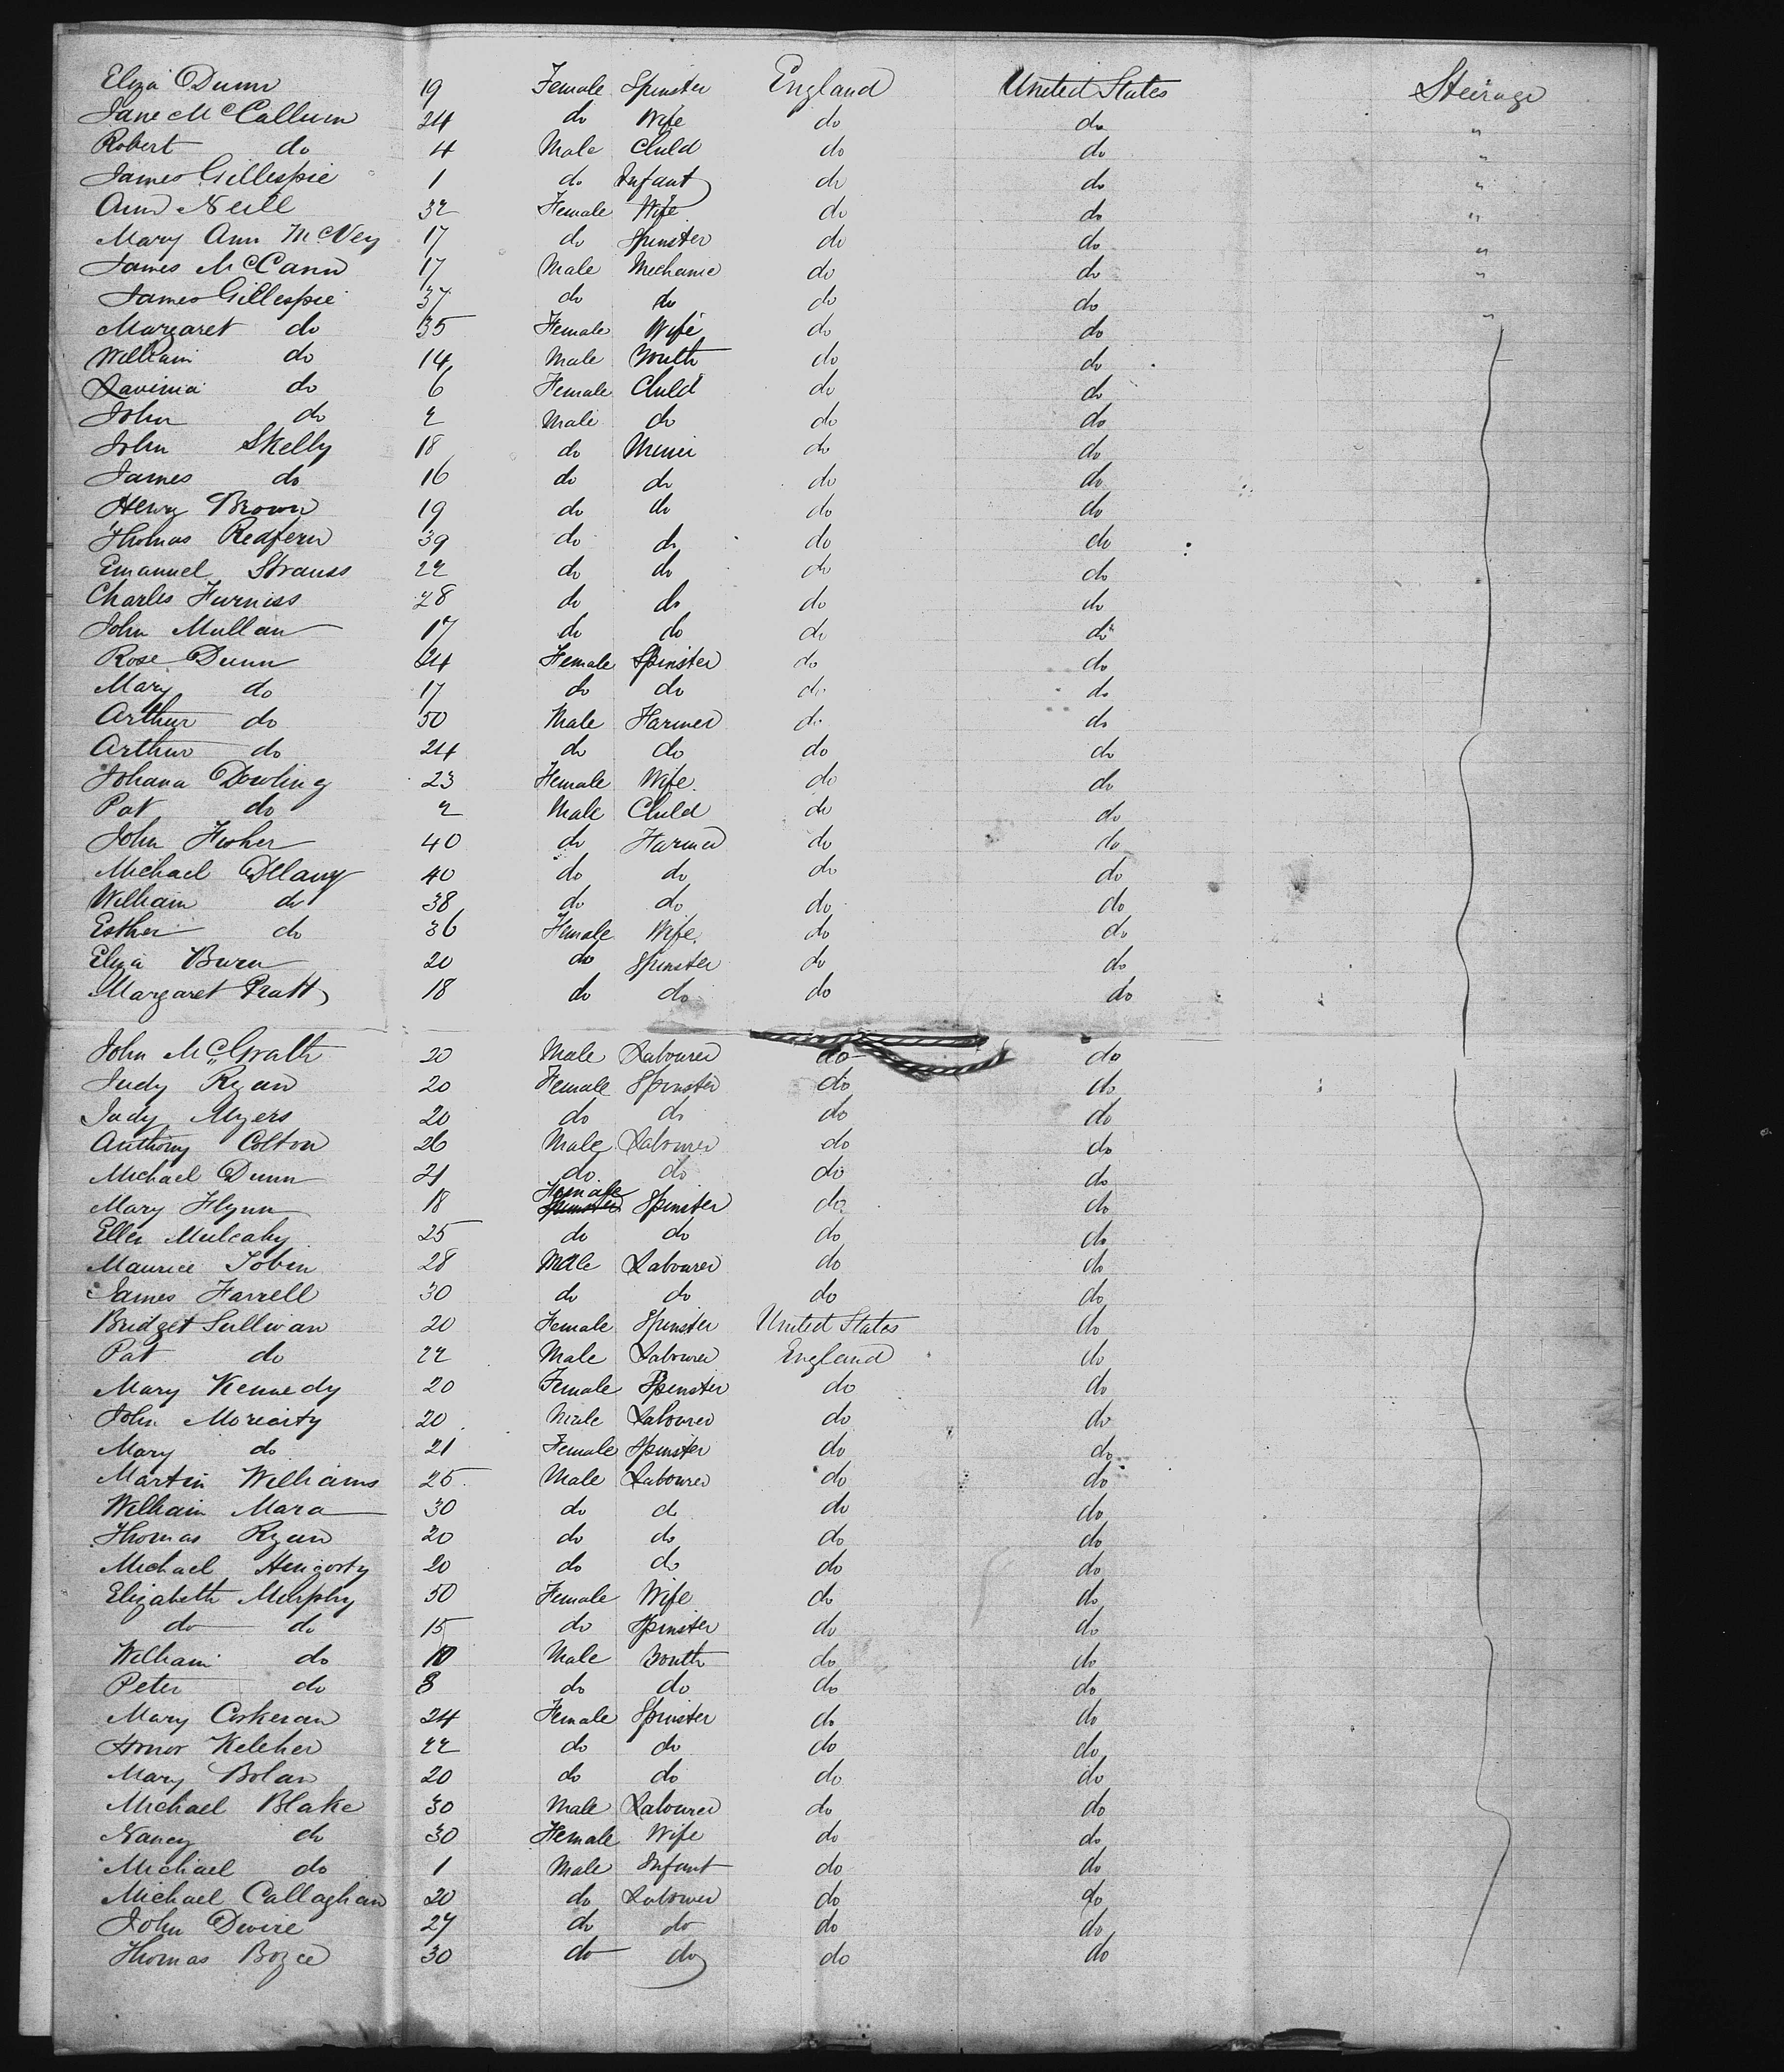 Eliza Dunn 19 Female Spinster England United States Steerage
Jane McCallum 24 do Wife do do "
Robert do 4 Male Child do do "
James Gillespie 1 do Infant do do "
Ann Neill 32 Female Wife do do "
Mary Ann McVey 17 do Spinster do do "
James McCann 17 Male Mechanic do do "
James Gillespie 37 do do do do "
Margaret do 35 Female Wife do do
William do 14 Male Youth do do
Lavinia do 6 Female Child do do
John do 2 Male do do do
John Skelly 18 do Miner do do
James do 16 do do do do
Henry Brown 19 do do do do
Thomas Redfern 39 do do do do
Emanuel Strauss 22 do do do do
Charles Furniss 28 do do do do
John Mullan 17 do do do do
Rose Dunn 24 Female Spinster do do
Mary do 17 do do do do
Arthur do 50 Male Farmer do do
Arthur do 24 do do do do
Johana Dowling 23 Female Wife do do
Pat do 2 Male Child do do
John Fisher 40 do Farmer do do
Michael Dllany 40 do do do do
William do 38 do do do do
Esther do 36 Female Wife do do
Eliza Buren 20 do Spinster do do
Margaret Pratt 18 do do do do
John McGrath 20 Male Labourer do do
Judy Ryan 20 Female Spinster do do
Judy Myers 20 do do do do
Anthony Colton 26 Male Labourer do do
Michael Dunn 21 do do do do
Mary Flynn 18 Female Spinster do do
Ellen Mulcahy 25 do do do do
Maurice Tobin 28 Male Labourer do do
James Farrell 30 do do do do
Bridget Sullivan 20 Female Spinster United States do
Pat do 22 Male Labourer England do
Mary Kennedy 20 Female Spinster do do
John Moriarty 20 Male Labourer do do
Mary do 21 Female Spinster do do
Martin Williams 25 Male Labourer do do
William Mara 30 do do do do
Thomas Ryan 20 do do do do
Michael 20 do do do do
Elizabeth Murphy 50 Female Wife do do
do do 15 do Spinster do do
William do 10 Male Youth do do
Peter do 8 do do do do
Mary Corkeran 24 Female Spinster do do
Honor Keleher 22 do do do do
Mary Bolan 20 do do do do
Michael Blake 30 Male Labourer do do
Nancy do 30 Female Wife do do
Michael do 1 Male Infant do do
Michael Callaghan 20 do Labourer do do
John Dwire 27 do do do do
Thomas Boyce 30 do do do do